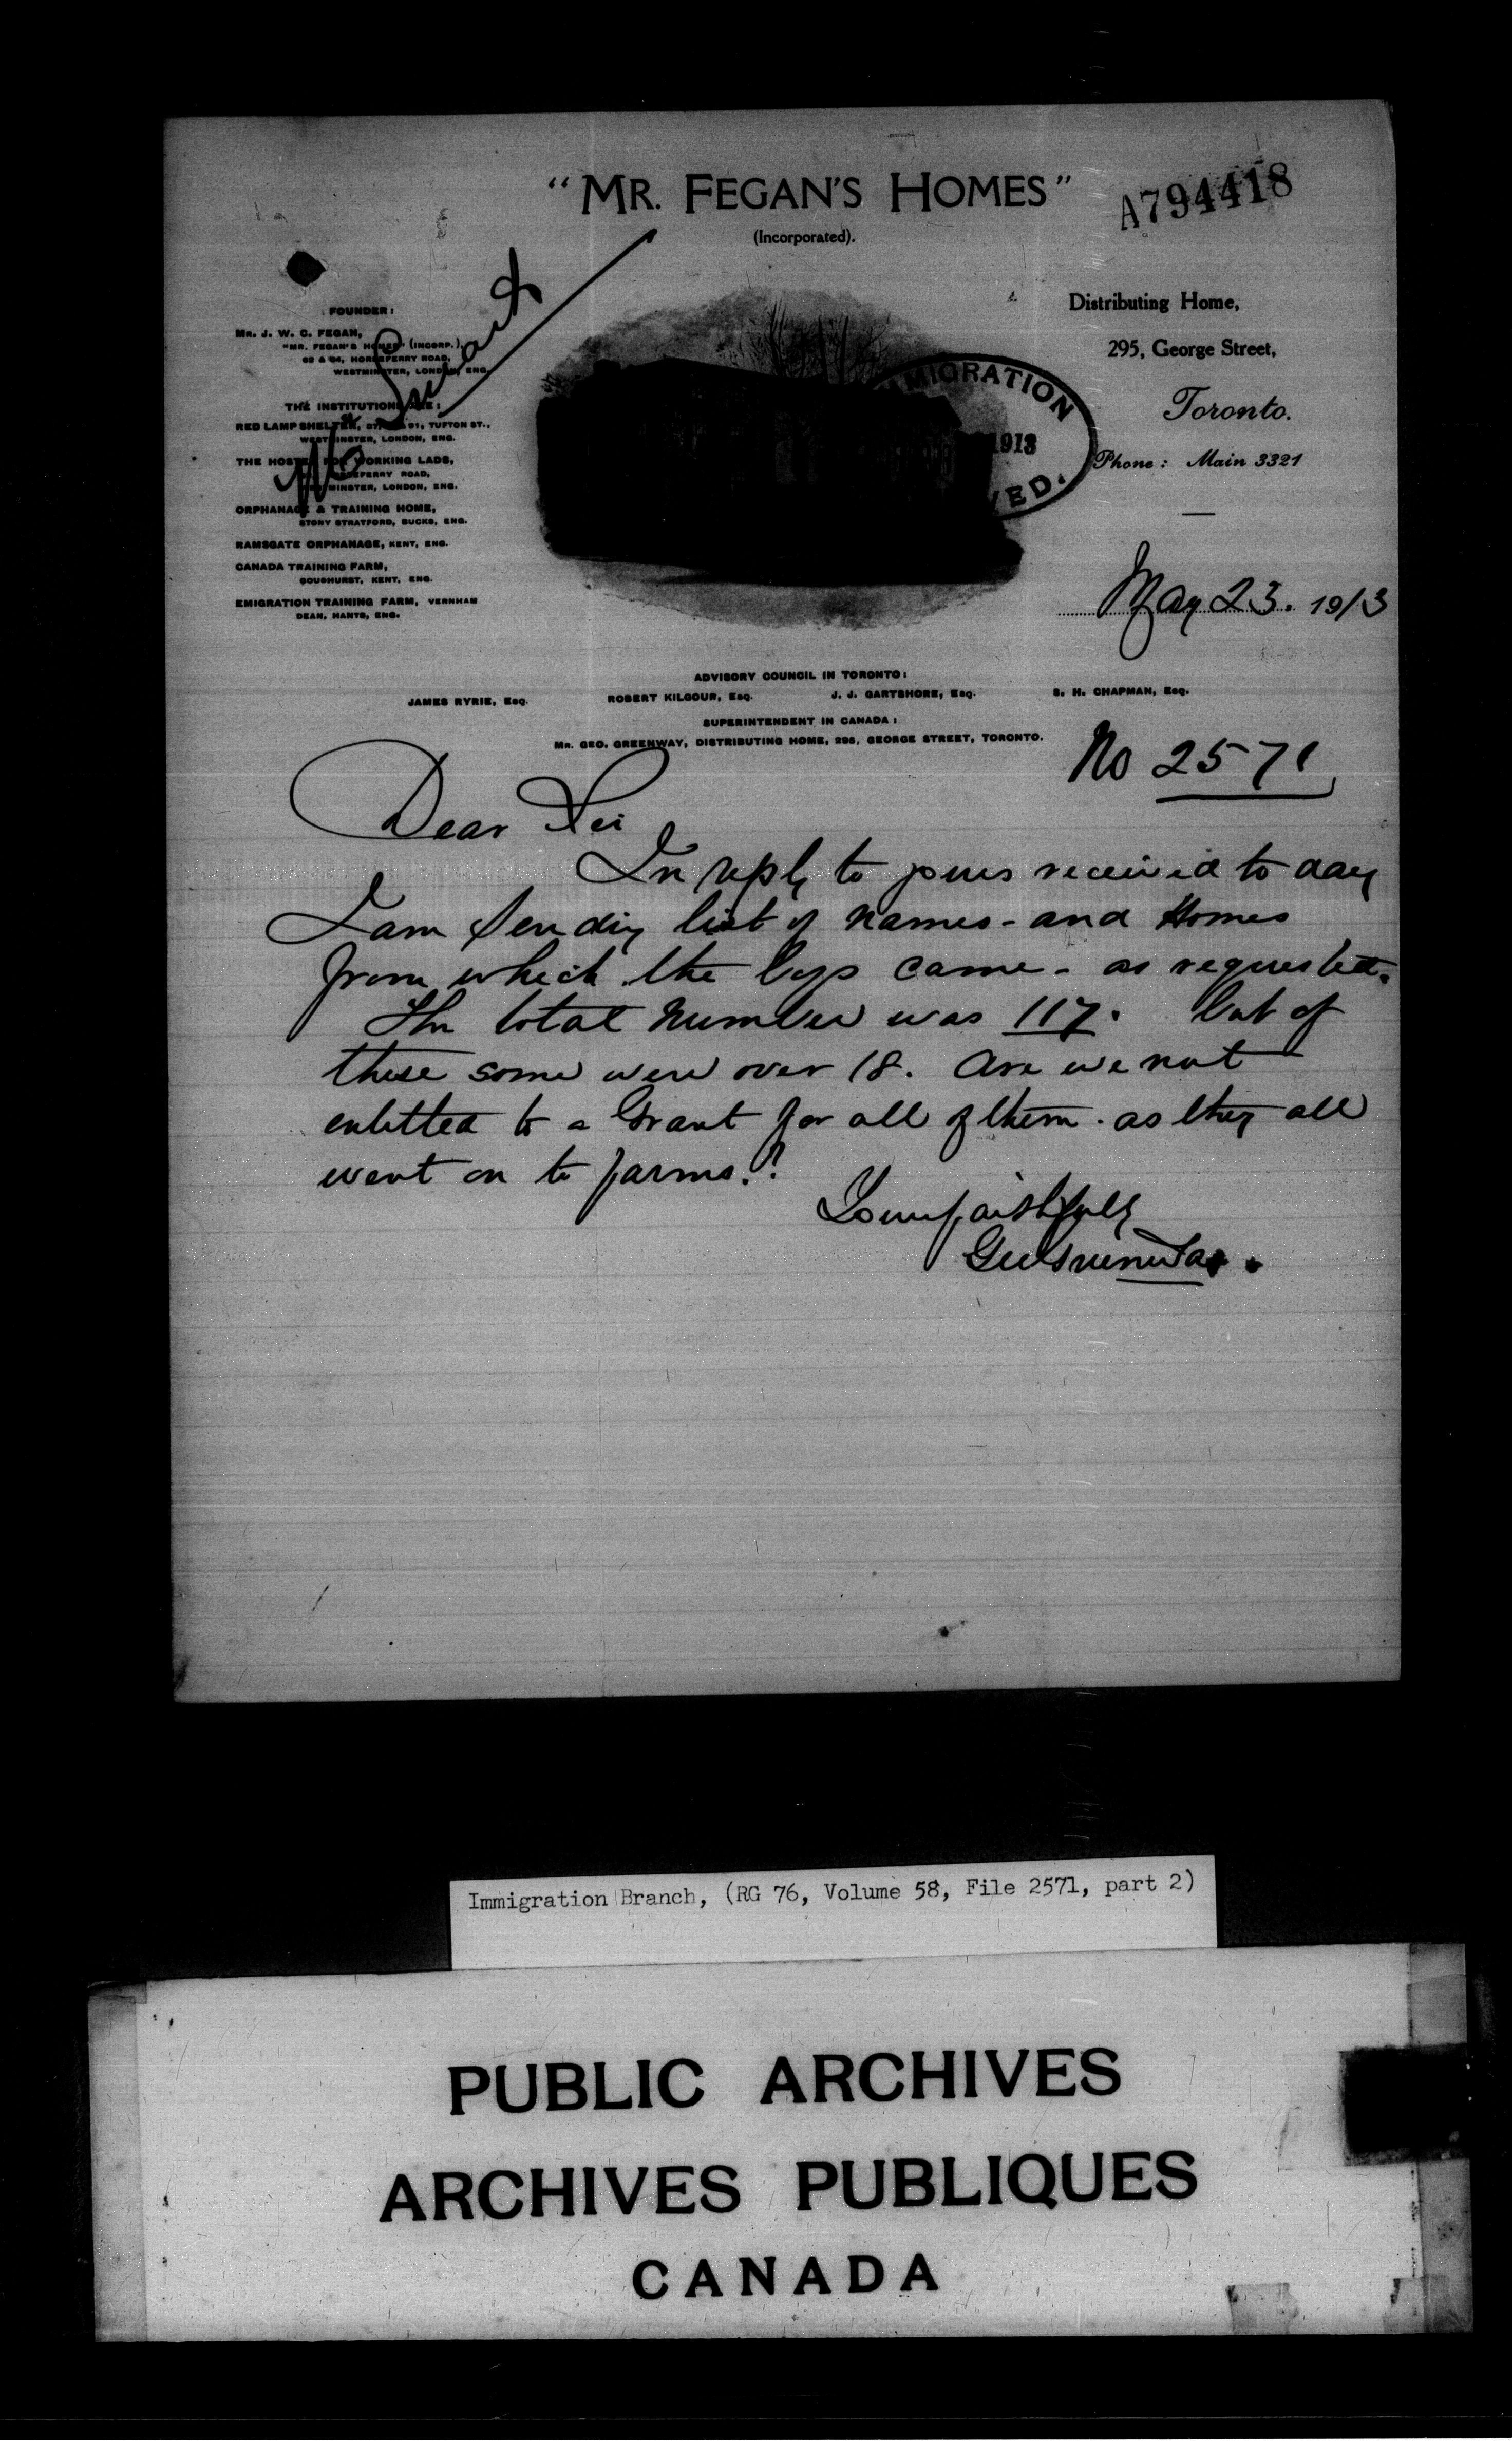 "MR. FEGAN'S HOMES"
(Incorporated).
A794418
FOUNDER:
MR. J. W. C. FEGAN,
"MR. FEGAN'S HOMES" (INCORP.)
62 & 64, HORSEFERRY ROAD,
WESTMINSTER, LONDON, ENG.
THE INSTITUTIONS ARE:
RED LAMP SHELTER, 87, 91, TUFTON ST.,
WESTMINSTER, LONDON, ENG.
THE HOSTEL FOR WORKING LADS,
HORSEFERRY ROAD,
WESTMINSTER, LONDON, ENG.
ORPHANAGE & TRAINING HOME,
STONY STRATFORD, BUCKS, ENG.
RAMSGATE ORPHANAGE, KENT, ENG.
CANADA TRAINING FARM,
GOUDHURST, KENT, ENG.
EMIGRATION TRAINING FARM, VERNHAM
DEAN, HANTS, ENG.
Mr Smart
IMMIGRATION
1913
VED.
Distributing Home,
295, George Street,
Toronto.
Phone: Main 3321
May 23. 1913
ADVISORY COUNCIL IN TORONTO:
JAMES RYRIE, Esq. ROBERT KILGOUR, Esq. J. J. GARTSHORE, Esq. S. H. CHAPMAN, Esq.
SUPERINTENDENT IN CANADA:
MR. GEO. GREENWAY, DISTRIBUTING HOME, 295, GEORGE STREET, TORONTO.
No 2571
Dear Sir
In reply to yours received to day
I am sending list of names - and Homes
from which the boys came - as requested.
The total number was 117. but of
these some were over 18. Are we not
entitled to a Grant for all of them. as they all
went on to farms.?
Yours faithfully
Geo Greenway.
Immigration Branch, (RG 76, Volume 58, File 2571, part 2)
PUBLIC ARCHIVES
ARCHIVES PUBLIQUES
CANADA